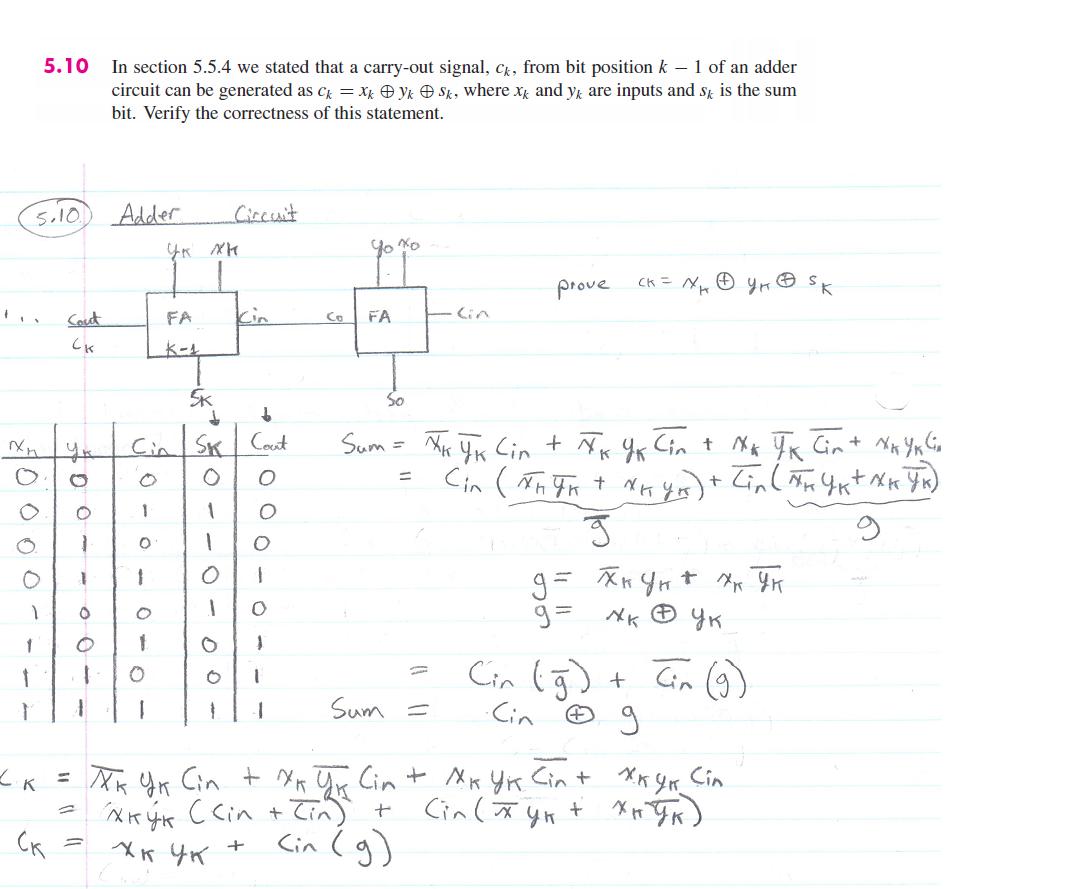 5.10 In section 5.5.4 we stated that a carry-out signal, cₖ, from bit position k − 1 of an adder
circuit can be generated as cₖ = xₖ ⊕ yₖ ⊕ sₖ, where xₖ and yₖ are inputs and sₖ is the sum
bit. Verify the correctness of this statement.
5.10 Adder Circuit
yₖ xₖ y₀ x₀
prove cₖ = xₖ ⊕ yₖ ⊕ sₖ
... Cout FA Cin C₀ FA Cin
Cₖ K-1
Sₖ S₀
xₖ yₖ Cin Sₖ Cout
0 0 0 0 0
0 0 1 1 0
0 1 0 1 0
0 1 1 0 1
1 0 0 1 0
1 0 1 0 1
1 1 0 0 1
1 1 1 1 1
Sum = x̅ₖ y̅ₖ Cin + x̅ₖ yₖ C̅i̅n̅ + xₖ y̅ₖ C̅i̅n̅ + xₖ yₖ Cin
= Cin ( x̅ₖ y̅ₖ + xₖ yₖ ) + C̅i̅n̅ ( x̅ₖ yₖ + xₖ y̅ₖ )
g̅ g
g = x̅ₖ yₖ + xₖ y̅ₖ
g = xₖ ⊕ yₖ
= Cin (g̅) + C̅i̅n̅ (g)
Sum = Cin ⊕ g
Cₖ = x̅ₖ yₖ Cin + xₖ y̅ₖ Cin + xₖ yₖ C̅i̅n̅ + xₖ yₖ Cin
= xₖ yₖ (Cin + C̅i̅n̅) + Cin ( x̅ yₖ + xₖ y̅ₖ )
Cₖ = xₖ yₖ + Cin (g)